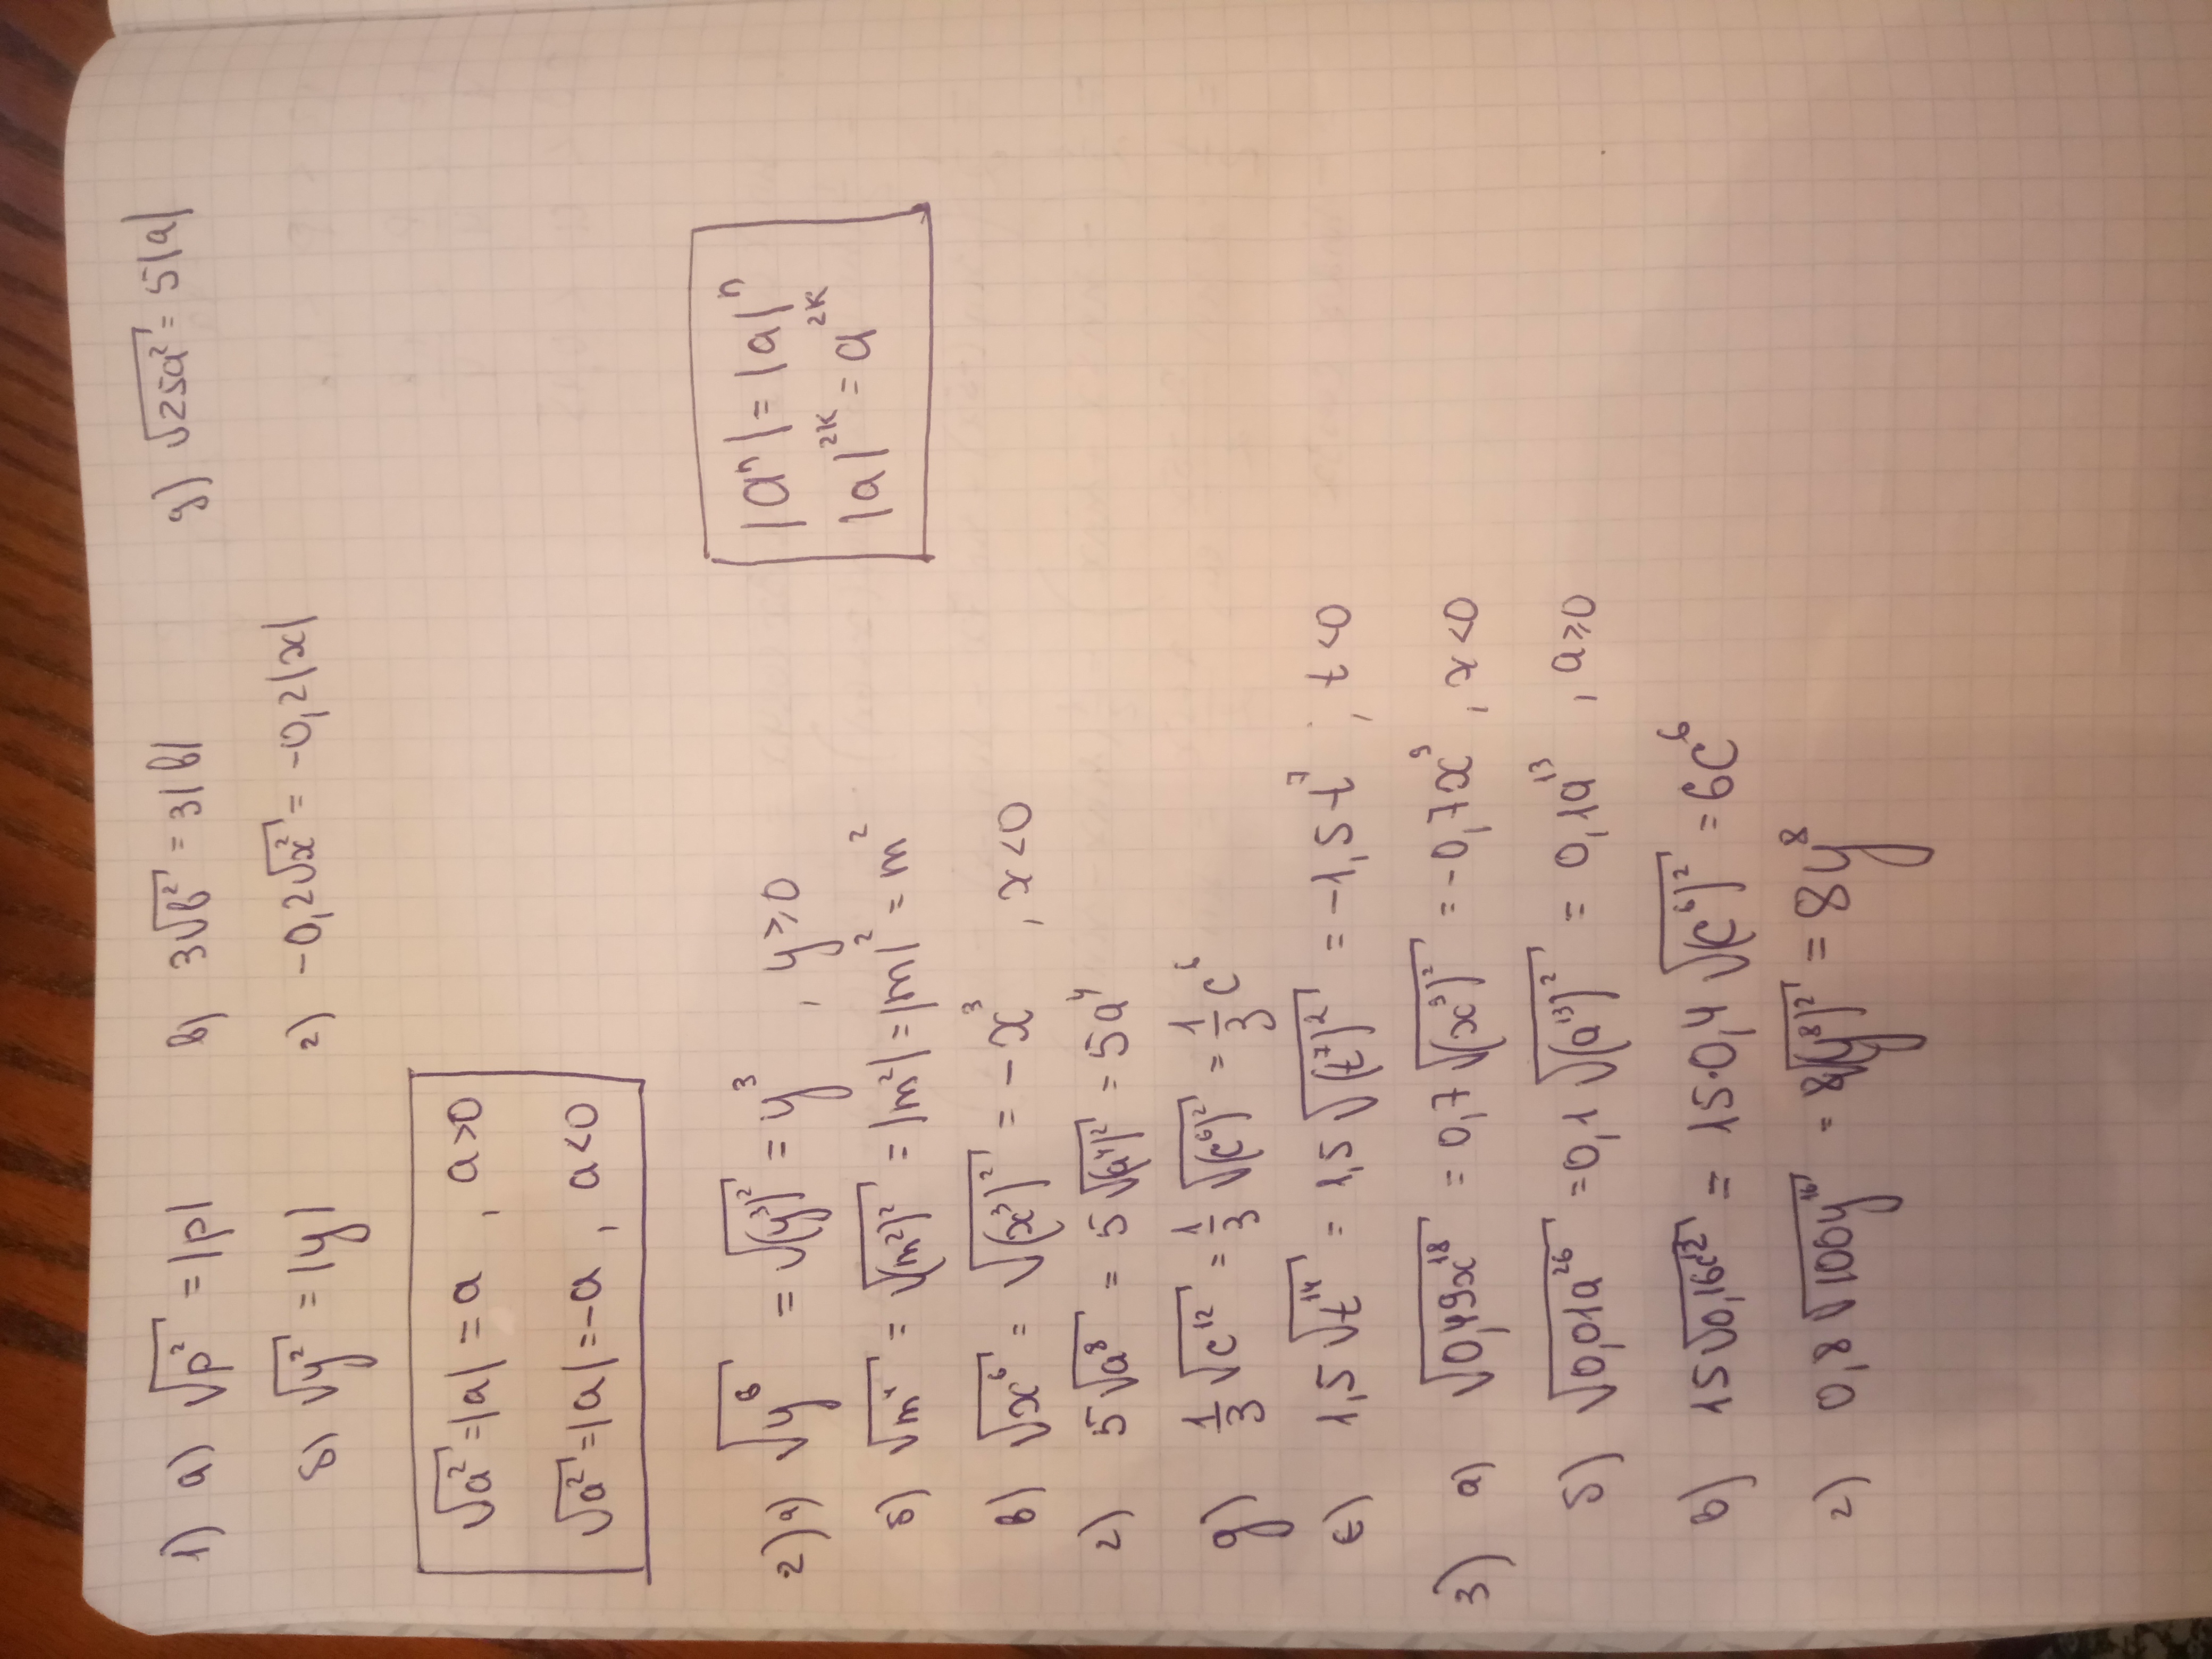 1) а) √p² = |p| в) 3√b² = 3|b| д) √25a² = 5|a|
б) √y² = |y| г) -0,2√x² = -0,2|x|
√a² = |a| = a , a>0
√a² = |a| = -a , a<0
2) а) √y⁶ = √(y³)² = y³ , y⩾0
|aⁿ| = |a|ⁿ
|a|²ᴷ = a²ᴷ
б) √m⁴ = √(m²)² = |m²| = |m|² = m²
в) √x⁶ = √(x³)² = -x³ , x<0
г) 5√a⁸ = 5√(a⁴)² = 5a⁴
д) 1/3 √c¹² = 1/3 √(c⁶)² = 1/3 c⁶
е) 1,5√t¹⁴ = 1,5√(t⁷)² = -1,5t⁷ , t<0
3) а) √0,49x¹⁸ = 0,7√(x⁹)² = -0,7x⁹ , x<0
б) √0,01a²⁶ = 0,1√(a¹³)² = 0,1a¹³ , a⩾0
в) 15√0,16c¹² = 15·0,4√(c⁶)² = 6c⁶
г) 0,8√100y¹⁶ = 8√(y⁸)² = 8y⁸